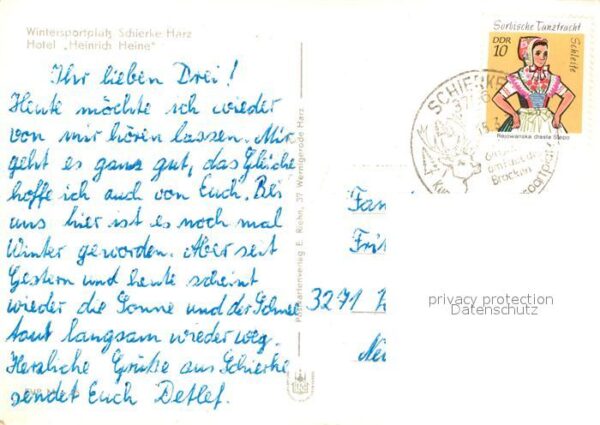 Wintersportplatz Schierke Harz
Hotel „Heinrich Heine"
Ihr lieben Drei!
Heute möchte ich wieder
von mir hören lassen. Mir
geht es ganz gut, das Gleiche
hoffe ich auch von Euch. Bei
uns hier ist es noch mal
Winter geworden. Aber seit
Gestern und heute scheint
wieder die Sonne und der Schnee
taut langsam wieder weg.
Herzliche Grüße aus Schierke
sendet Euch Detlef.
Postkartenverlag E. Riehn, 37 Wernigerode Harz
Sorbische Tanztracht
DDR
10
Schleife
Rejowanska drasta Slepo
SCHIERKE
37
15.3
am Fuße des
Brocken
Fam
Fri
3271
Neu
privacy protection
Datenschutz